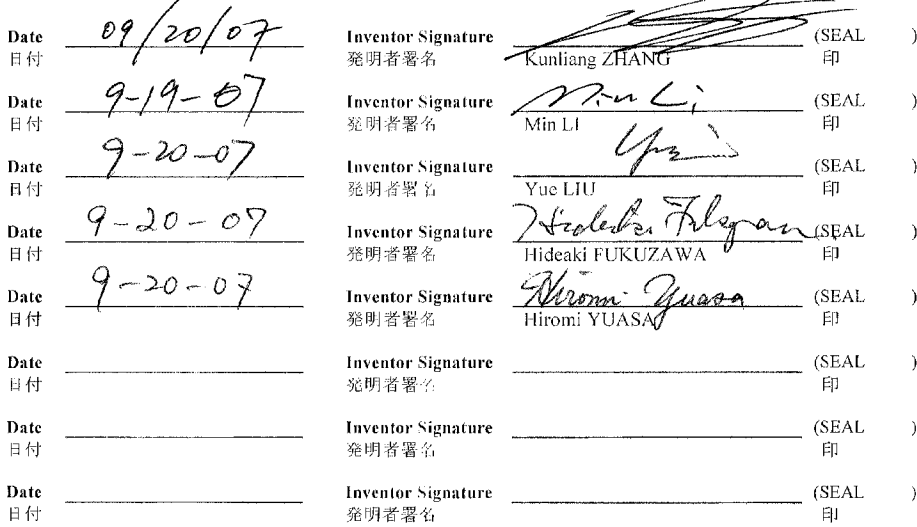 Date 09/20/07 Inventor Signature (SEAL )
日付 発明者署名 Kunliang ZHANG 印
Date 9-19-07 Inventor Signature Min Li (SEAL )
日付 発明者署名 Min LI 印
Date 9-20-07 Inventor Signature (SEAL )
日付 発明者署名 Yue LIU 印
Date 9-20-07 Inventor Signature Hideaki (SEAL )
日付 発明者署名 Hideaki FUKUZAWA 印
Date 9-20-07 Inventor Signature Hiromi Yuasa (SEAL )
日付 発明者署名 Hiromi YUASA 印
Date Inventor Signature (SEAL )
日付 発明者署名 印
Date Inventor Signature (SEAL )
日付 発明者署名 印
Date Inventor Signature (SEAL )
日付 発明者署名 印